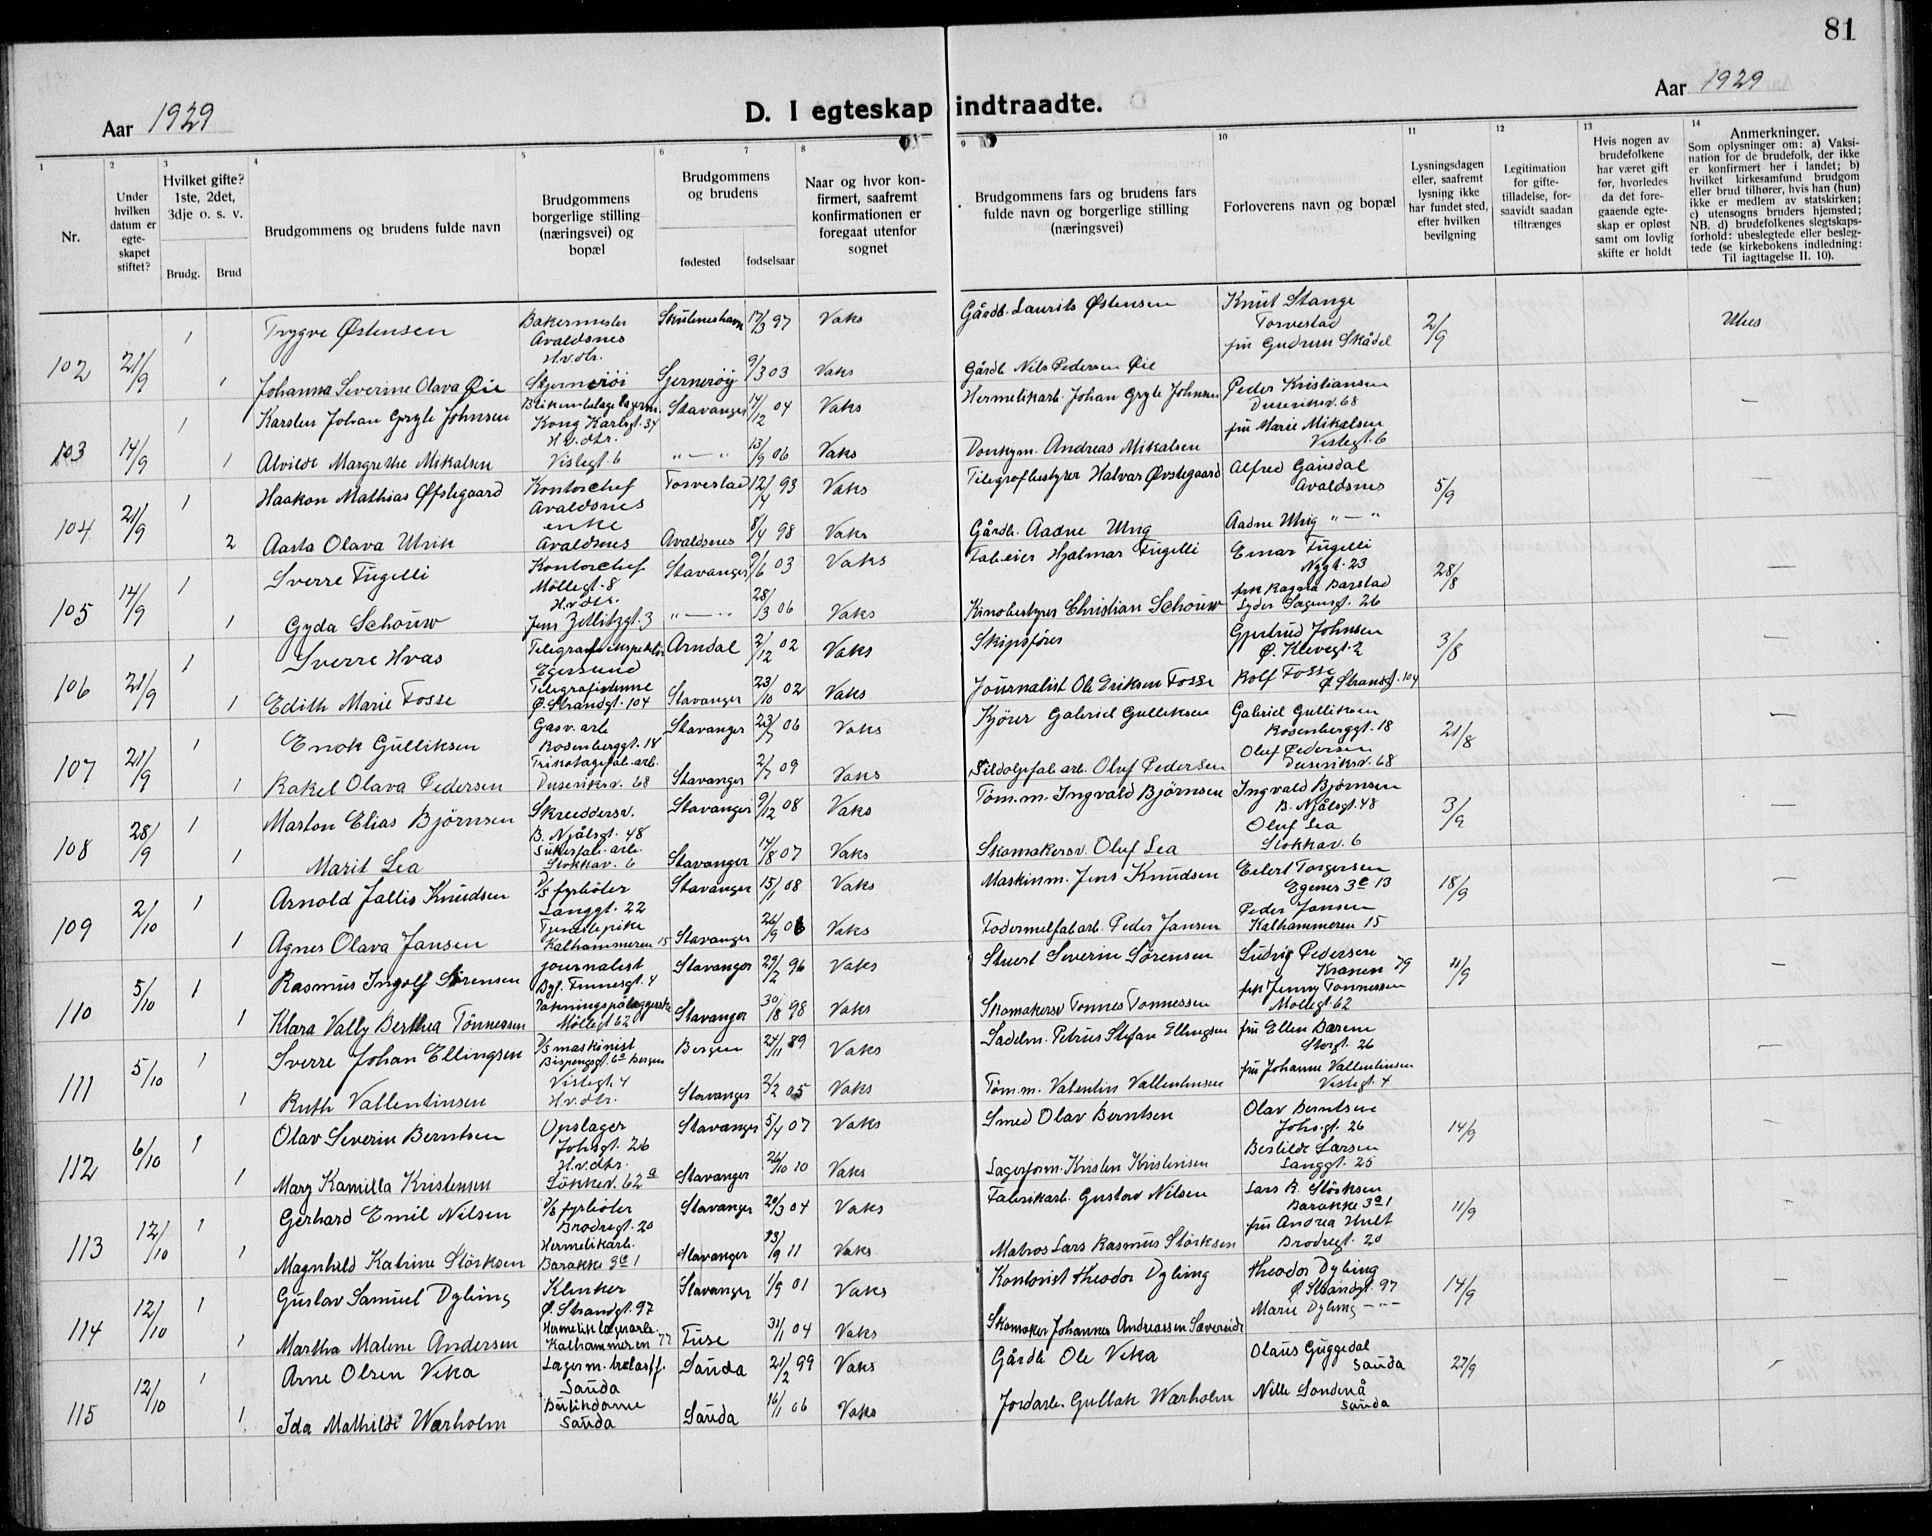 81
Aar 1929
D. I egteskap indtraadte.
Aar 1929
1 2 3 4 5 6 7 8 9 10 11 12 13 14
Nr.
Under hvilken datum er egteskapet stiftet?
Hvilket gifte? 1ste, 2det, 3dje o. s. v.
Brudg. Brud
Brudgommens og brudens fulde navn
Brudgommens borgerlige stilling (næringsvei) og bopæl
Brudgommens og brudens
fødested fødselsaar
Naar og hvor konfirmert, saafremt konfirmationen er foregaat utenfor sognet
Brudgommens fars og brudens fars fulde navn og borgerlige stilling (næringsvei)
Forloverens navn og bopæl
Lysningsdagen eller, saafremt lysning ikke har fundet sted, efter hvilken bevilgning
Legitimation for giftetilladelse, forsaavidt saadan tiltrænges
Hvis nogen av brudefolkene har været gift før, hvorledes da det foregaaende egteskap er opløst samt om lovlig skifte er holdt
Anmerkninger.
Som oplysninger om: a) Vaksination for de brudefolk, der ikke er konfirmert her i landet; b) hvilket kirkesamfund brudgom eller brud tilhører, hvis han (hun) ikke er medlem av statskirken; c) utensogns bruders hjemsted; NB. d) brudefolkenes slegtskapsforhold: ubeslegtede eller beslegtede (se kirkebokens indledning: Til iagttagelse II. 10).
102 21/9 1 Trygve Østensen Bakermester Avaldsnes Skudeneshavn 17/3 97 Vaks Gårdb. Laurits Østensen Knut Stange Torvestad 2/9
1 Johanna Severine Olava Øie H.v.dtr. Sjernerøi Sjernerøy 9/3 03 Vaks Gårdb. Nils Pedersen Øie fru Gudrun Skådel
103 14/9 1 Karsten Johan Gryte Johnsen Kong Karlsgt. 34 Stavanger 14/12 04 Vaks Hermetikarb. Johan Gryte Johnsen Peder Kristiansen Duseviksv. 68 —
1 Alvilde Margrethe Mikalsen H.v.dtr. Vistegt. 6 " — " 13/9 06 Vaks Donkym. Andreas Mikalsen fru Marie Mikalsen Vistegt. 6
104 21/9 1 Haakon Mathias Øfstegaard Kontorchef Avaldsnes Torvestad 12/4 93 Vaks Telegrafbestyrer Halvar Øvstegaard Alfred Gausdal Avaldsnes 5/9 —
2 Aasta Olava Utvik enke Avaldsnes Avaldsnes 8/4 98 Vaks Gårdb. Aadne Utvig Aadne Utvig " — "
105 14/9 1 Sverre Fugelli Kontorchef Møllegt. 8 Stavanger 9/6 03 Vaks Fab.eier Hjalmar Fugelli Einar Fugelli Nygt. 23 28/8 —
1 Gyda Schouw H.v.dtr. Jens Zetlitzgt. 3 " — " 28/3 06 Vaks Kinobestyrer Christian Schouw frk Ragna Barstad Lyder Sagensgt. 26
106 21/9 1 Sverre Hvas Telegrafinspektør Egersund Arndal 2/12 02 Vaks Skipsfører Gjertrud Johnsen Ø. Klevegt. 2 3/8 —
1 Edith Marie Fosse Telegrafistinne Ø. Strandgt. 104 Stavanger 23/10 02 Vaks Journalist Ole Eriksen Fosse Rolf Fosse Ø. Strandgt. 104
107 21/9 1 Enok Gulliksen Gasv. arb. Rosenberggt. 18 Stavanger 23/7 06 Vaks Kjører Gabriel Gulliksen Gabriel Gulliksen Rosenberggt. 18 21/8 —
1 Rakel Olava Pedersen Trikotagefab. arb. Duseviksv. 68 Stavanger 2/7 09 Vaks Sildoljefab. arb. Oluf Pedersen Oluf Pedersen Duseviksv. 68
108 28/9 1 Maston Elias Bjørnsen Skreddersv. B. Njålsgt. 48 Stavanger 9/12 08 Vaks Tøm.m. Ingvald Bjørnsen Ingvald Bjørnsen B. Njålsgt. 48 3/9 —
1 Marit Lea Stokkav. 6 Stavanger 14/8 07 Vaks Skomakersv. Oluf Lea Oluf Lea Stokkav. 6
109 2/10 1 Arnold Jallis Knudsen D/S fyrbøter Langgt. 22 Stavanger 15/1 08 Vaks Maskinm. Jens Knudsen Eilert Torgersen Egenes 3c 13 18/9 —
1 Agnes Olava Jansen Tjenestepike Kalhammeren 15 Stavanger 26/9 06 Vaks Fodermelfabarb. Peder Jansen Peder Jansen Kalhammeren 15
110 5/10 1 Rasmus Ingolf Sørensen journalist Stavanger 29/2 96 Vaks Stuert Severin Sørensen Ludvig Pedersen Kranen 79 11/9 —
1 Klara Vally Berthea Tønnessen Møllegt 62 Stavanger 30/8 98 Vaks Skomakersv Tønnes Tønnessen frk Jenny Tønnessen Møllegt. 62
111 5/10 1 Sverre Johan Ellingsen D/S maskinist Bergen 24/11 89 Vaks Sadelm. Petrus Stefan Ellingsen fru Ellen Bærem Storgt. 26 —
1 Ruth Vallentinsen Vistegt. 4 H.v.dtr. Stavanger 2/2 05 Vaks Tøm.m. Valentin Vallentinsen fru Johanne Vallentinsen Vistegt. 4
112 6/10 1 Olav Severin Berntsen Opslager Johsgt. 26 Stavanger 5/4 07 Vaks Smed Olav Berntsen Olav Berntsen Johs.gt. 26 14/9 —
1 Mary Kamilla Kristensen H.v.dtr. Løkkev. 62a Stavanger 26/10 10 Vaks Lagerform. Kristen Kristensen Bertilde Larsen Langgt. 25
113 12/10 1 Gerhard Emil Nilsen D/S fyrbøter Brodregt. 20 Stavanger 20/3 04 Vaks Fabrikarb. Gustav Nilsen Lars R. Størksen Barakke 3a 1 11/9 —
1 Magnhild Katrine Størksen Hermetikarb. Barakke 3a 1 Stavanger 23/9 11 Vaks Matros Lars Rasmus Størksen fru Andrea Hult Brodregt. 20
114 12/10 1 Gustav Samuel Dybing Klinker Ø. Strandgt. 97 Stavanger 1/9 01 Vaks Kontorist Theodor Dybing Theodor Dybing Ø. Strandgt. 97 14/9 —
1 Martha Malene Andersen Kalhammeren 77 Fuse 31/1 04 Vaks Skomaker Johannes Andreassen Sævereide Marie Dybing — " —
115 12/10 1 Arne Olsen Vika Sauda Sauda 21/2 99 Vaks Gårdb Ole Vika Olaus Guggedal Sauda 27/9 —
1 Ida Mathilde Warholm Butikdame Sauda Sauda 16/1 06 Vaks Jordarb. Gullak Warholm Nille Sandenå Sauda